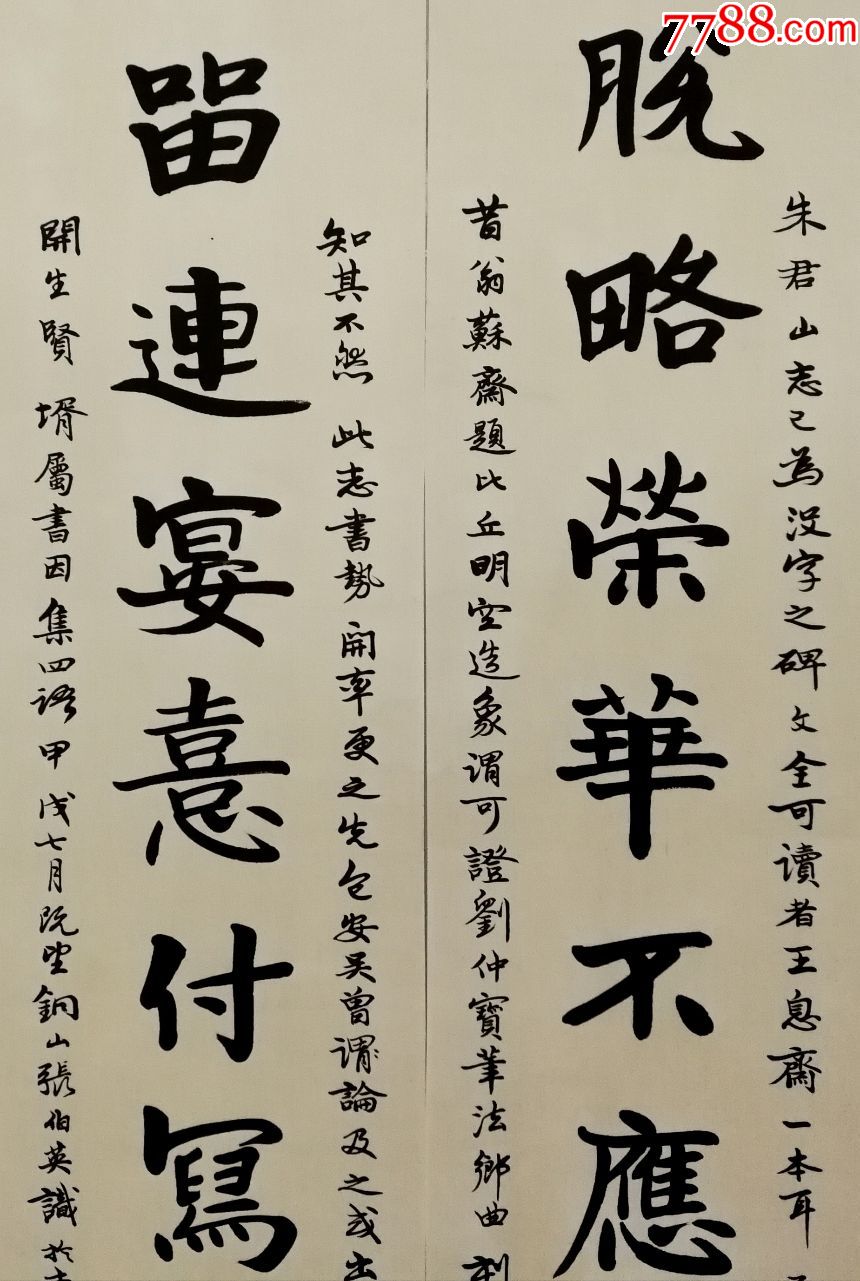 7788.com
脱略榮華不應
朱君山志已為没字之碑文全可讀者王息齋一本耳
昔翁蘇齋題比丘明空造象謂可證劉仲寶筆法鄉曲
畱連宴憙付寫
知其不然此志書勢開率更之先包安吴曾謂論及之或出
開生賢壻屬書因集四語甲戌七月既望銅山張伯英識於